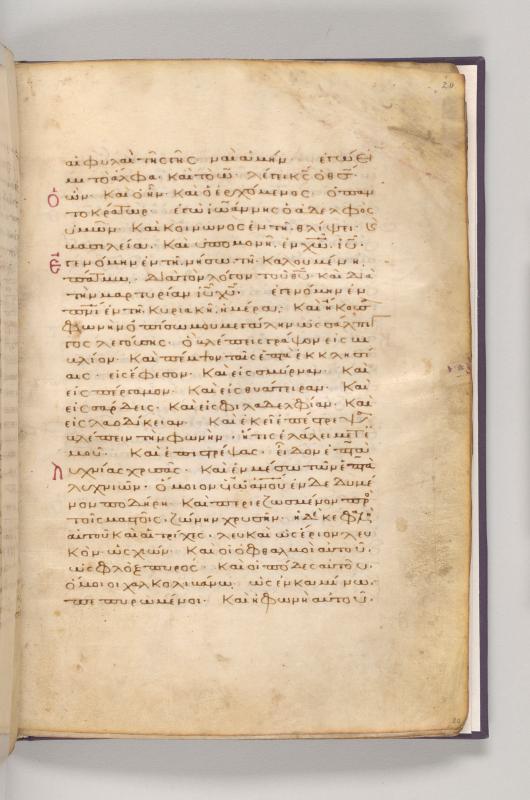 20
αἱ φυλαὶ τῆς γῆς ναὶ ἀμήν · ἐγώ εἰ
μι τὸ ἄλφα · καὶ τὸ ω̄ · λέγει κ̅ς̅ ὁ θ̅ς̅ ὁ
ὢν · καὶ ὁ ἦν · καὶ ὁ ἐρχόμενος · ὁ παν
τοκράτωρ · ἐγὼ ἰωάννης ὁ ἀδελφὸς
ὑμῶν · καὶ κοινωνὸς ἐν τῇ θλίψει ·
βασιλείᾳ · καὶ ὑπομονῇ, ἐν χ̅ω̅ · ἰ̅υ̅ ·
ἐγενόμην ἐν τῇ νήσῳ τῇ καλουμένῃ
πάτμῳ · διὰ τὸν λόγον τοῦ θ̅υ̅ καὶ διὰ
τὴν μαρτυρίαν ἰ̅υ̅ χ̅υ̅ · ἐγενόμην ἐν
π̅ν̅ι̅ ἐν τῇ κυριακῇ ἡμέρᾳ · καὶ ἤκουσα
φωνὴν ὀπίσω μου μεγάλην ὡς σάλπιγ
γος λεγούσης · ὃ βλέπεις γράψον εἰς βι
βλίον · καὶ πέμψον ταῖς ἑπτὰ ἐκκλησί
αις · εἰς ἔφεσον · καὶ εἰς σμύρναν · καὶ
εἰς πέργαμον · καὶ εἰς θυάτειραν · καὶ
εἰς σάρδεις · καὶ εἰς φιλαδελφίαν · καὶ
εἰς λαοδίκειαν · καὶ ἐκεῖ ἐπέστρεψα
βλέπειν τὴν φωνὴν · ἥτις ἐλάλει μετ ἐ
μοῦ · καὶ ἐπιστρέψας · εἶδον ἑπτὰ
λυχνίας χρυσᾶς · καὶ ἐν μέσῳ τῶν ἑπτὰ
λυχνιῶν · ὅμοιον υ̅ω̅ ἀ̅ν̅ο̅υ̅ ἐνδεδυμέ
νον ποδήρη · καὶ περιεζωσμένον πρὸς
τοῖς μαστοῖς · ζώνην χρυσῆν · ἡ δὲ κεφαλὴ
αὐτοῦ καὶ αἱ τρίχες · λευκαὶ ὡς ἔριον λευ
κὸν ὡς χιών · καὶ οἱ ὀφθαλμοὶ αὐτοῦ ·
ὡς φλὸξ πυρός · καὶ οἱ πόδες αὐτοῦ ·
ὅμοιοι χαλκολιβάνῳ · ὡς ἐν καμίνῳ ·
πεπυρωμένοι · καὶ ἡ φωνὴ αὐτοῦ ·
20